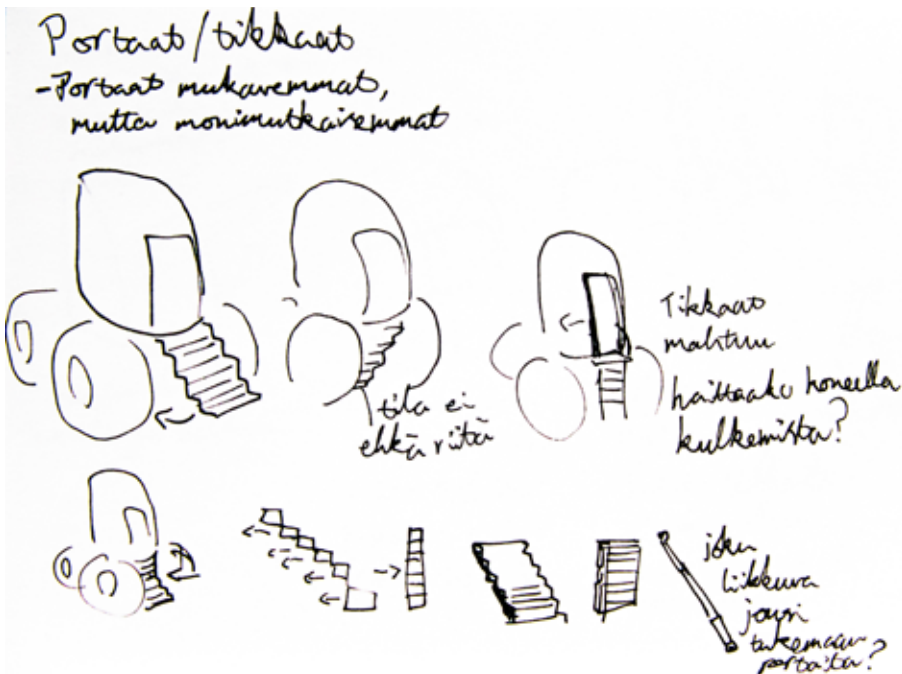 Portaat/tikkaat
-Portaat mukavemmat,
mutta monimutkaisemmat
tila ei
ehkä riitä
Tikkaat
mahtuu
haittaako koneella
kulkemista?
joku
liikkuva
jousi
tukemaan
portaita?